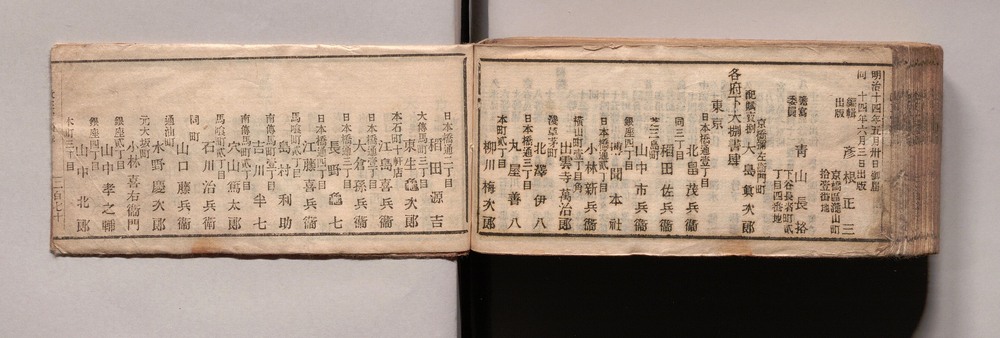 明治十四年五月卅日御届
同 十四年六月三日出版
編輯
出版
彥根正三
京橋區瀧山町
拾壹街地
謄寫
委員
青山長裕
下谷長者町貳
丁目四番地
京橋彌左衛門町
大島眞次郎
各府下大捌書肆
東京
日本橋通壹丁目
北畠茂兵衞
同三丁目
稻田佐兵衞
芝三島町
山中市兵衞
銀座四丁目
博聞本社
日本橋通二丁目
小林新兵衞
橫山町壹丁目角
出雲寺萬治郎
淺草茅町
北澤伊八
日本橋通三丁目
丸屋善八
本町貳丁目
柳川梅次郎
日本橋通二丁目
稻田源吉
大傳馬町三丁目
東生龜次郎
本石町十軒店
江島喜兵衞
日本橋通三丁目
大倉孫兵衞
日本橋通四丁目
長野龜七
日本橋通貳丁目
江藤喜兵衞
馬喰町貳丁目
島村利助
南傳馬町壹丁目
吉川半七
南傳馬町貳丁目
穴山篤太郎
馬喰町貳丁目
石川治兵衞
同町
山口藤兵衞
通油町
水野慶次郎
元大坂町
小林喜右衞門
銀座貳丁目
山中孝之輔
銀座四丁目
山中北郎
本町三丁目